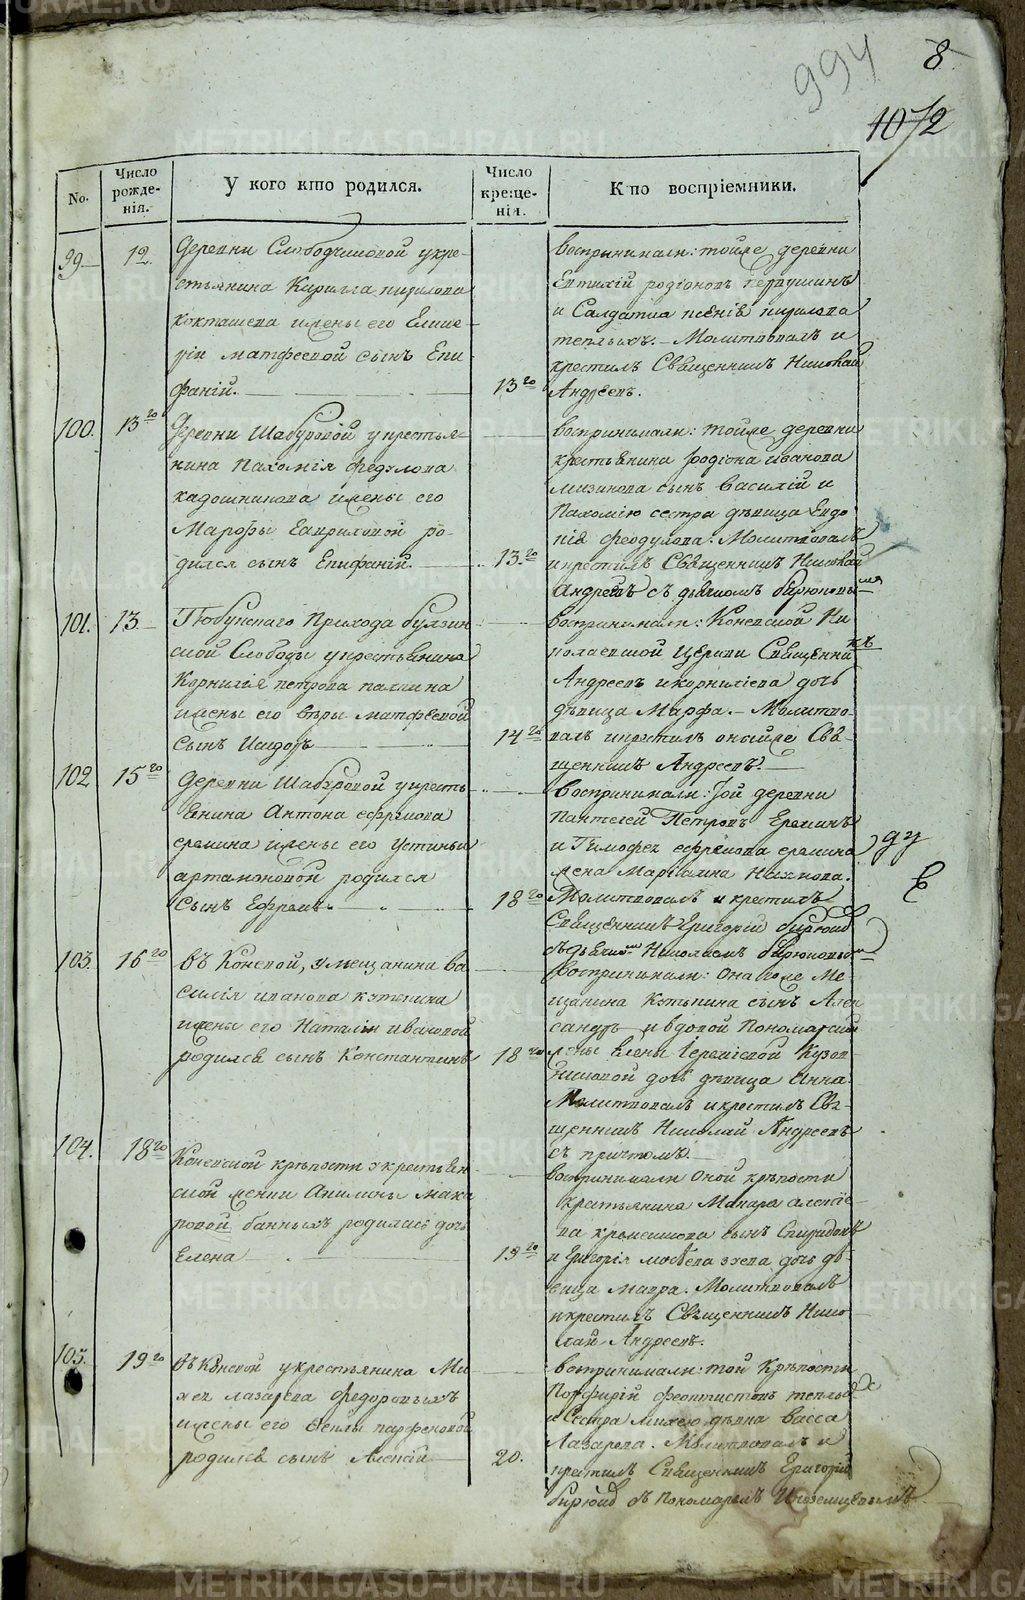 994
8
1072
No.
Число рожде-
нія.
У кого кто родился.
Число креще-
нія.
Кто воспріемники.
99
12
Деревни Слободчиковой у кре-
стьянина Кирилла
жены его
Матфеевой сынъ Епи-
фаній.
13го
воспринимали: тойже деревни
Евтихій родіоновъ Первушинъ
и Салдатка
теплыхъ. Молитвовалъ и
крестилъ Священникъ Николай
Андреевъ.
100.
13го
Деревни Шабуровой у крестья-
нина Пахомія Федулова
кадошникова жены его
Марфы Гавриловой ро-
дился сынъ Епифаній.
13.го
воспринимали: тойже деревни
крестьянина родіона иванова
Мизинова сынъ василій и
Пахомію сестра дѣвица Евдо
кія Феодулова. Молитвовалъ
и крестилъ Священникъ Николай
Андреевъ съ дьячкомъ бирюковымъ
101.
13
Тюбукскаго Прихода булзин
ской Слободы у крестьянина
Корнилія петрова палкина
жены его вѣры матфеевой
Сынъ Исидоръ
14го
воспринимали: Коневской Ни
колаевской Церкви Священникъ
Андреевъ и корниліева дочь
дѣвица Марфа. Молитво-
валъ и крестилъ онъ же Свя-
щенникъ Андреевъ.
102
15го
Деревни Шабуровой у кресть
янина Антона ефремова
еремина жены его Устиньи
артамоновой родился
Сынъ Ефремъ.
18го
воспринимали: Той деревни
Пантелей Петровъ Ереминъ
и Тимофея ефремова еремина
жена Маріамна Нахнова.
Молитвовалъ и крестилъ
Священникъ Григорій бирюков
съ дьячкомъ Николаемъ бирюковымъ
103.
16го
въ Коневой, у мещанина ва
силія иванова кэтепина
жены его Наталіи ивановой
родился сынъ Константинъ
18го
воспринимали: Она го же Ме
щанина Кэтепина сынъ Алек
сандръ и вдовой Пономарской
жены Елены Іереміевой Кузов
никовой дочь дѣвица Анна
Молитвовалъ и крестилъ Свя-
щенникъ Николай Андреевъ
съ причтомъ.
104.
18го
Коневской крѣпости у крестьян
ской женки Акилины Мака
ровой банныхъ родилась дочь
Елена
19го
воспринимали оной крѣпости
крестьянина Макара алексіе
ва сынъ Спиридонъ
и Григорія дочь дѣ-
вица мавра. Молитвовалъ
и крестилъ Священникъ Нико
лай Андреевъ.
105.
19го
въ Коневой у крестьянина Ми
хея лазарева Федоровыхъ
жены его Феклы парфеновой
родился сынъ Алексій
20.
воспринимали: той Крѣпости
Порфирій Феоктистовъ теплыхъ
и Сестра михею дѣвка васса
Лазарева. Молитвовалъ и
крестилъ Священникъ Григорій
бирюков съ пономаремъ Иноземцовымъ